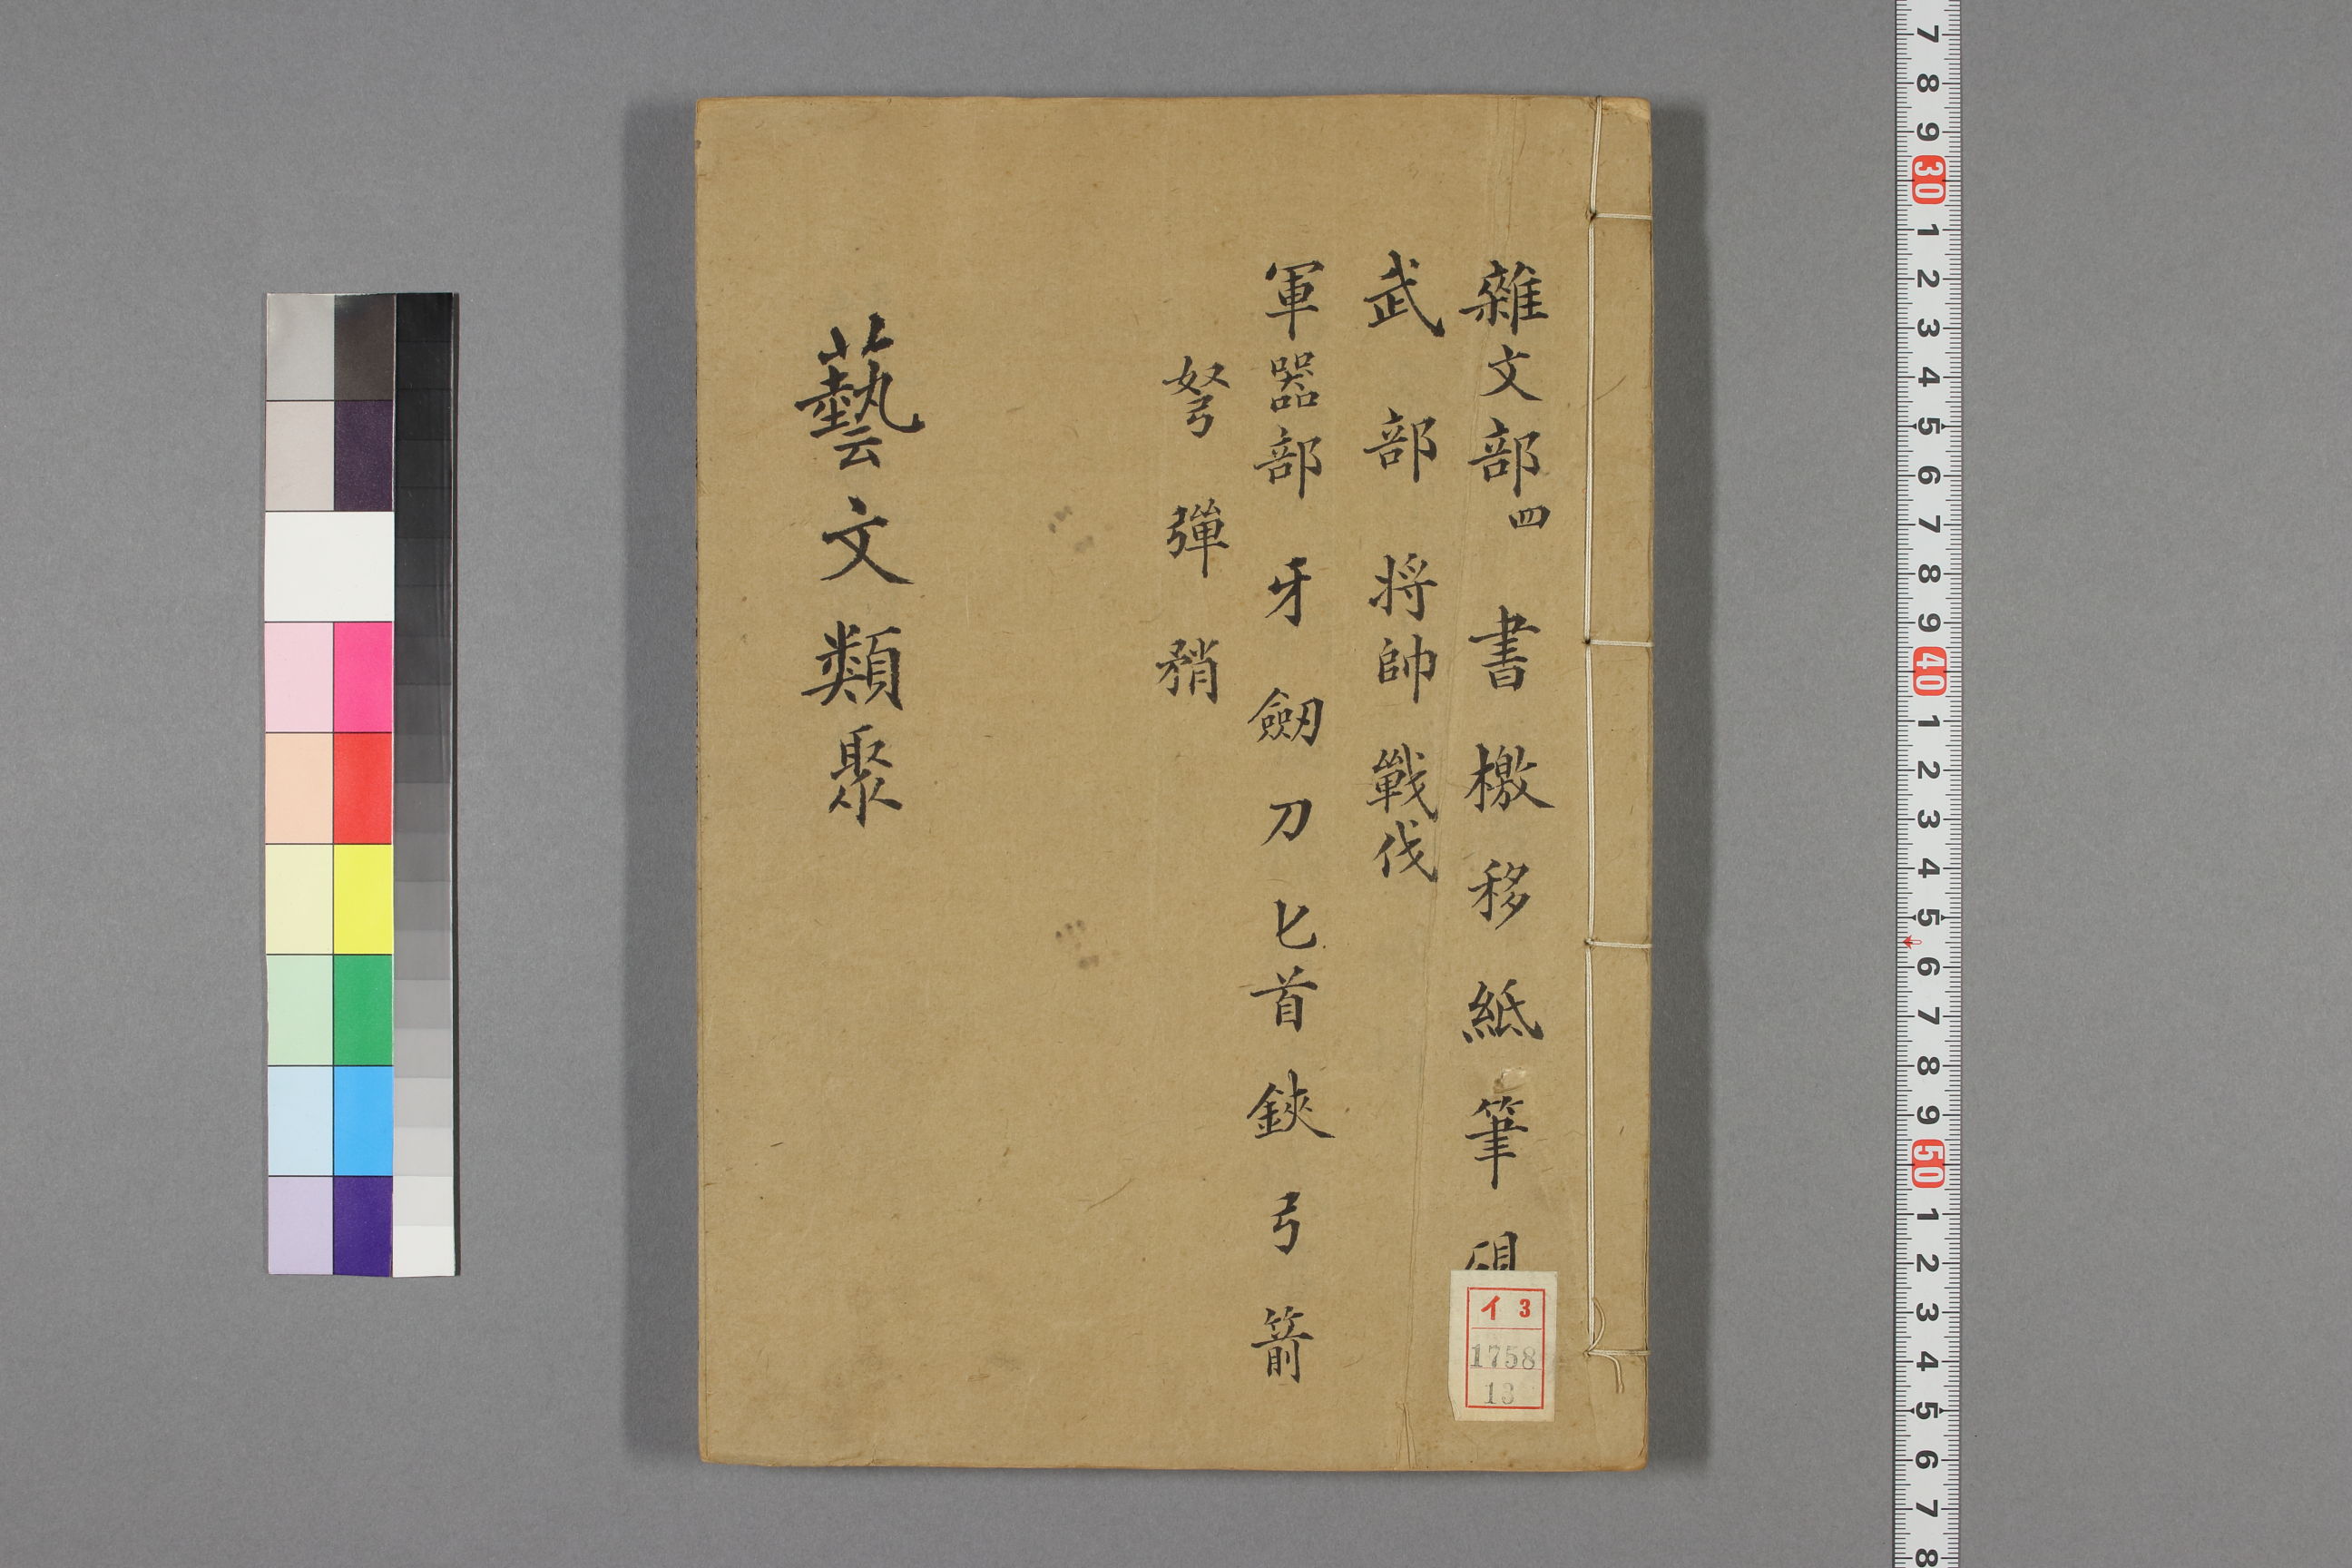 雜文部四 書 檄 移 紙 筆 硯
武部 将帥 戰伐
軍器部 牙 劒 刀 匕首 鋏 弓 箭
弩 彈 矟
藝文類聚
イ 3
1758
13
7 8 9 30 1 2 3 4 5 6 7 8 9 40 1 2 3 4 5 6 7 8 9 50 1 2 3 4 5 6 7 8